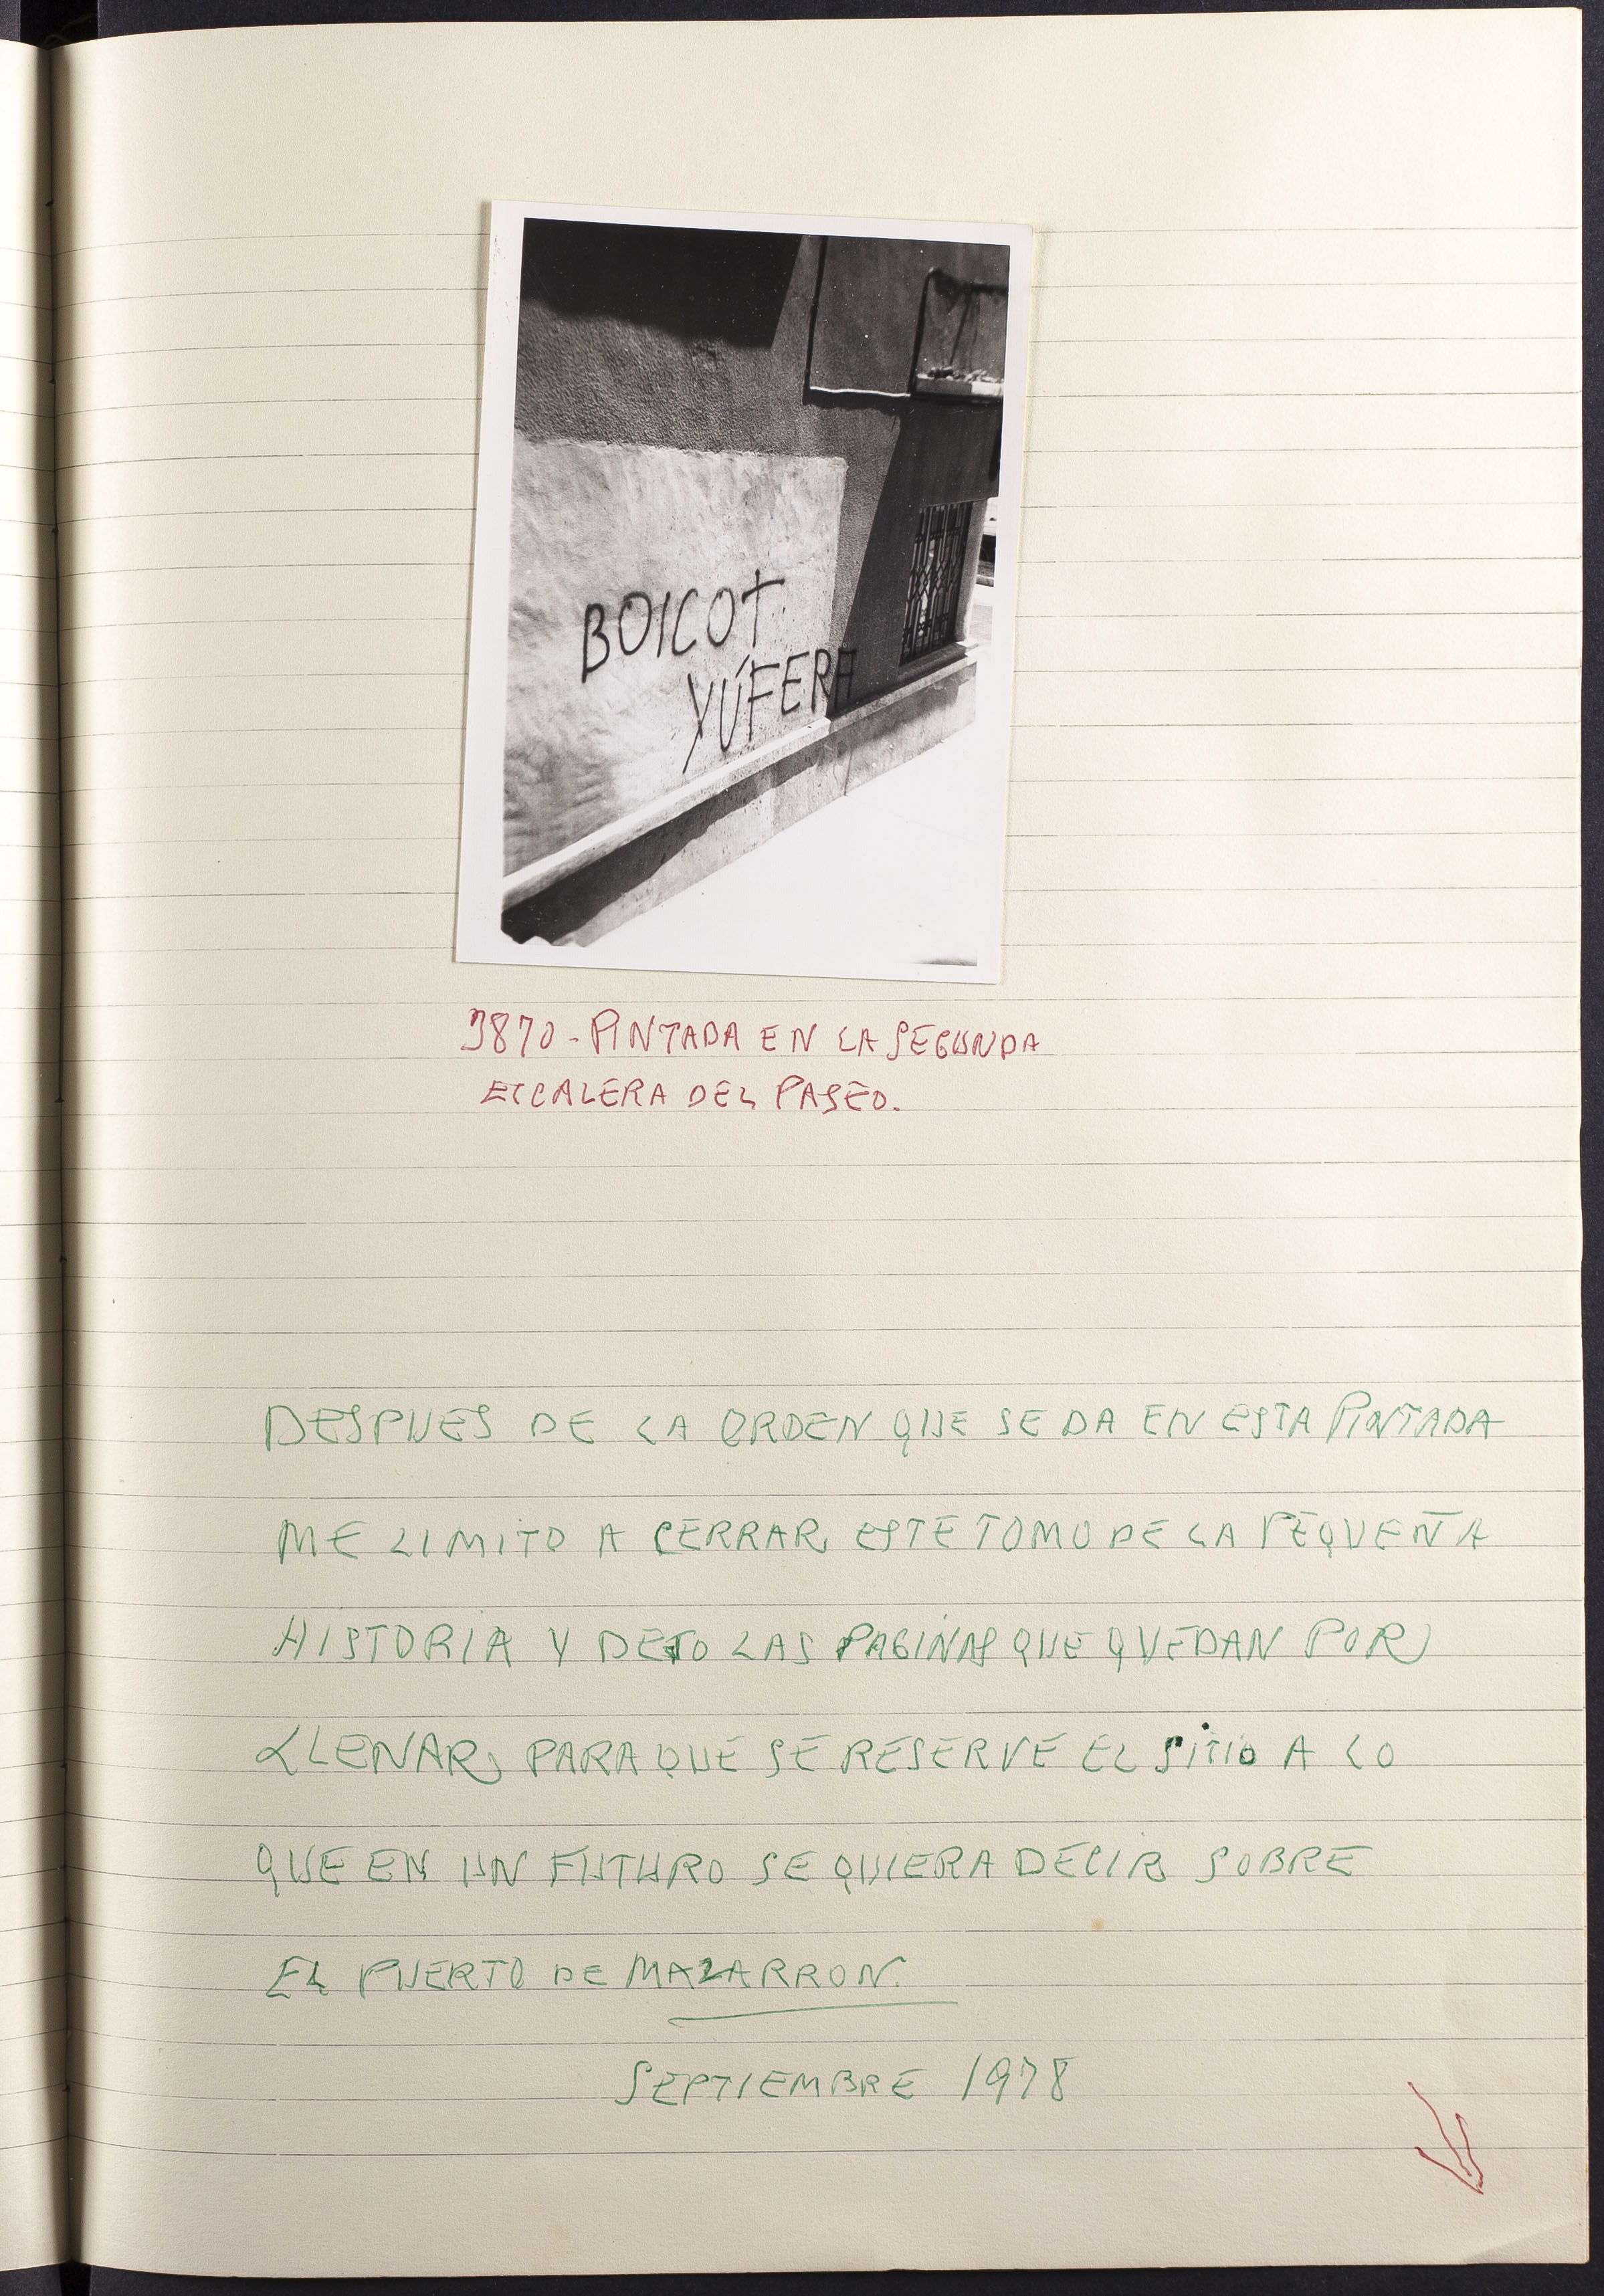 BOICOT
YÚFERA
3870 - PINTADA EN LA SEGUNDA
ESCALERA DEL PASEO.
DESPUES DE LA ORDEN QUE SE DA EN ESTA PINTADA
ME LIMITO A CERRAR ESTE TOMO DE LA PEQUEÑA
HISTORIA Y DEJO LAS PAGINAS QUE QUEDAN POR
LLENAR PARA QUE SE RESERVE EL SITIO A LO
QUE EN UN FUTURO SE QUIERA DECIR SOBRE
EL PUERTO DE MAZARRON.
SEPTIEMBRE 1978